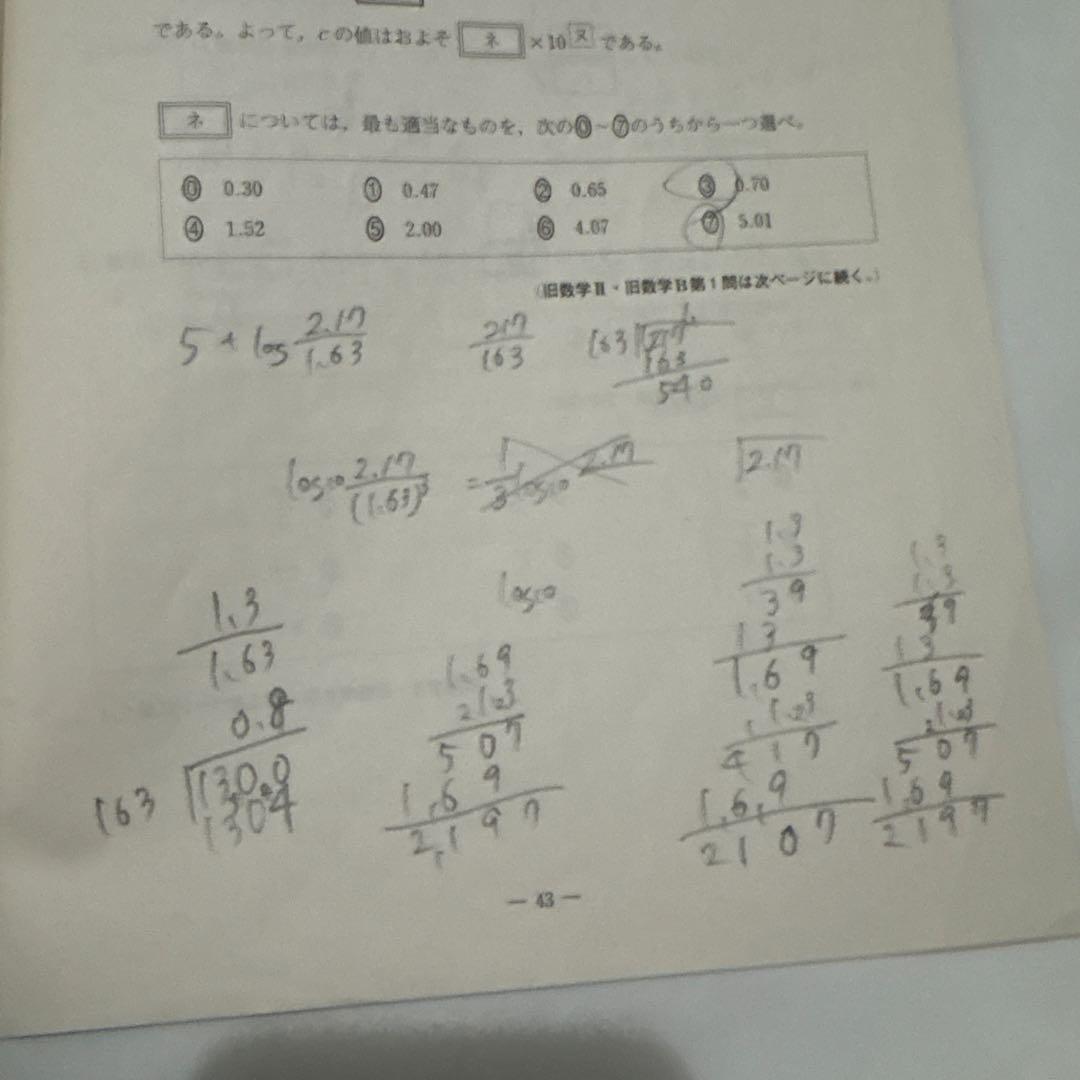 である。よって，cの値はおよそ ネ ×10 ヌ である。
ネ については，最も適当なものを，次の⓪～⑦のうちから一つ選べ。
⓪ 0.30 ① 0.47 ② 0.65 ③ 0.70
④ 1.52 ⑤ 2.00 ⑥ 4.07 ⑦ 5.01
(旧数学Ⅱ・旧数学B第1問は次ページに続く。)
5 + log 2.17/1.63
217/163
163
217
163
540
log10 2.17/(1.63)³ =
2.17
2.17
log10
1.3
1.63
0.8
163
130.0
1304
1.69
1.3
507
1.69
2.197
1.3
1.3
39
13
1.69
1.3
417
1.6.9
2107
1.3
1.3
39
13
1.69
1.3
507
1.69
2197
— 43 —